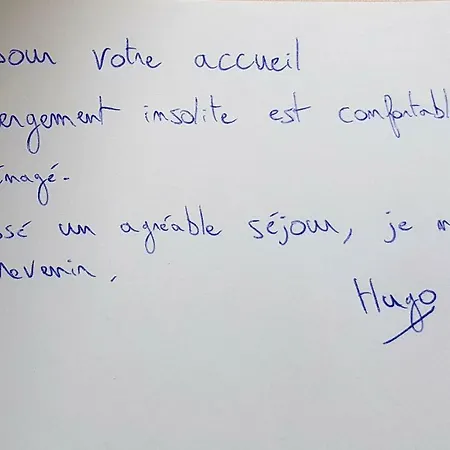 pour votre accueil
ergement insolite est confortabl
énagé.
ssé un agréable séjour, je m
revenir.
Hugo